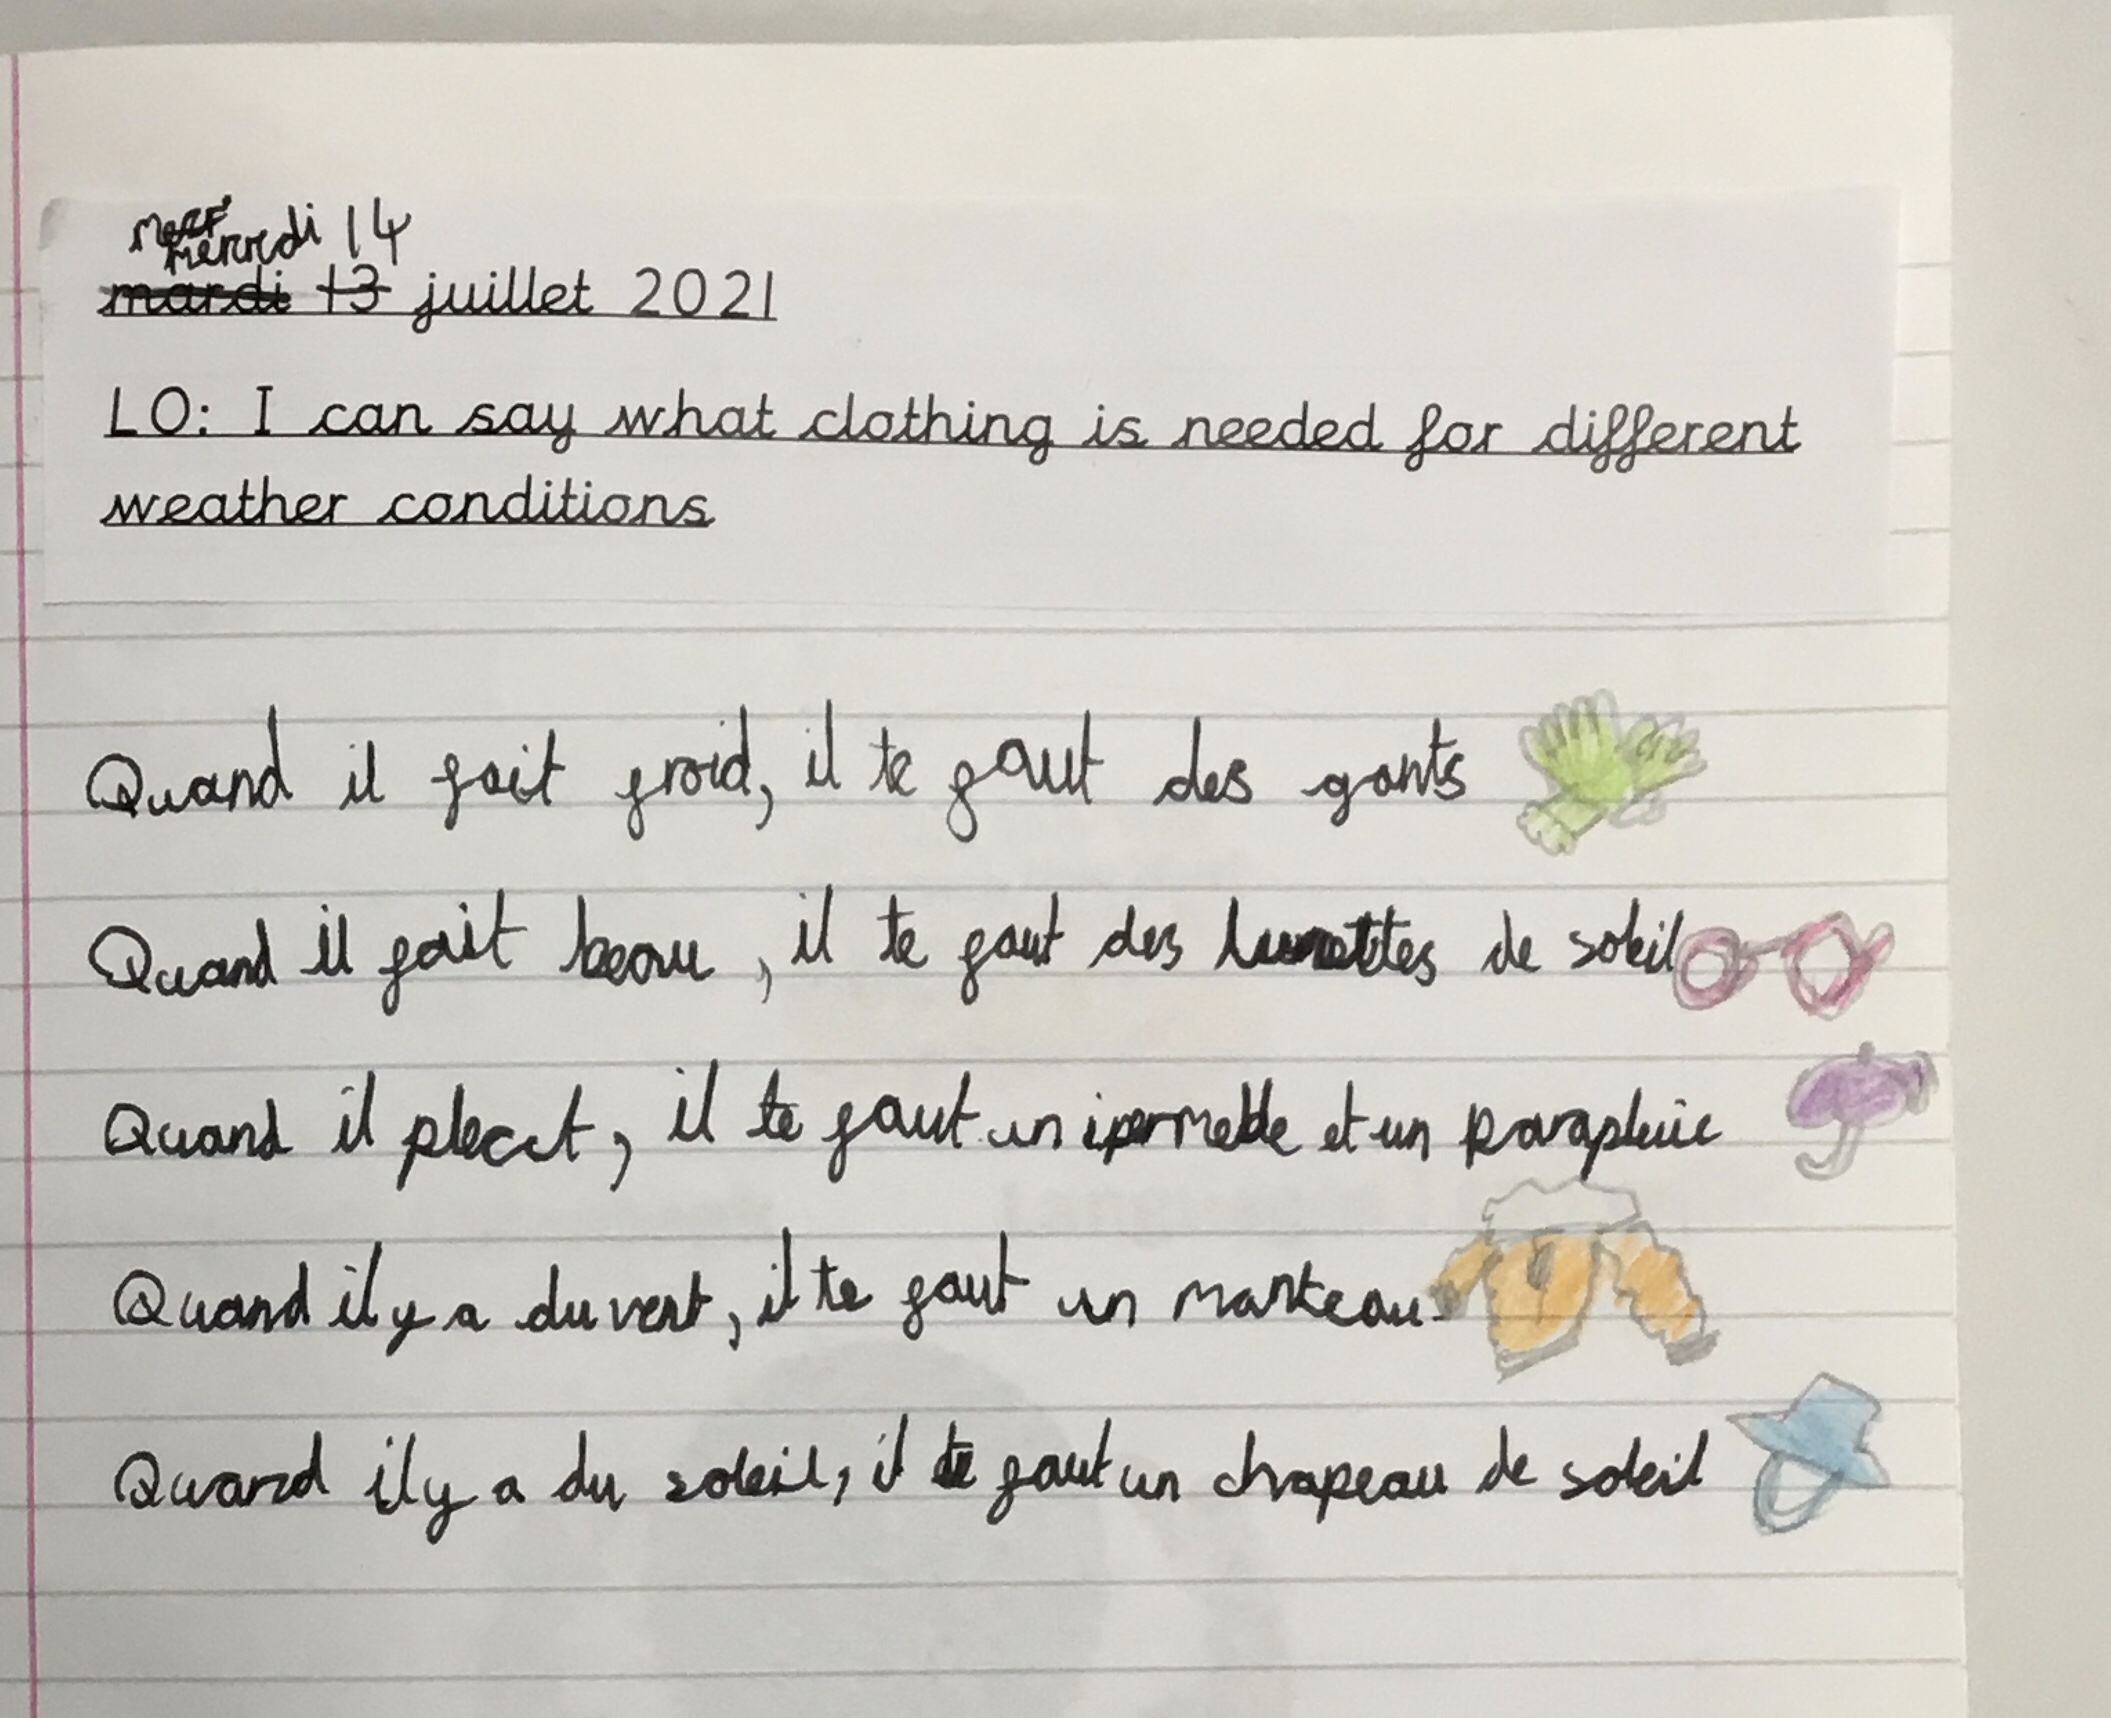 mercredi 14
mardi 13 juillet 2021
LO: I can say what clothing is needed for different
weather conditions
Quand il fait froid, il te faut des gants
Quand il fait beau, il te faut des lunettes de soleil
Quand il pleut, il te faut un ipermeble et un parapluie
Quand il y a du vent, il te faut un manteau.
Quand il y a du soleil, il te faut un chapeau de soleil